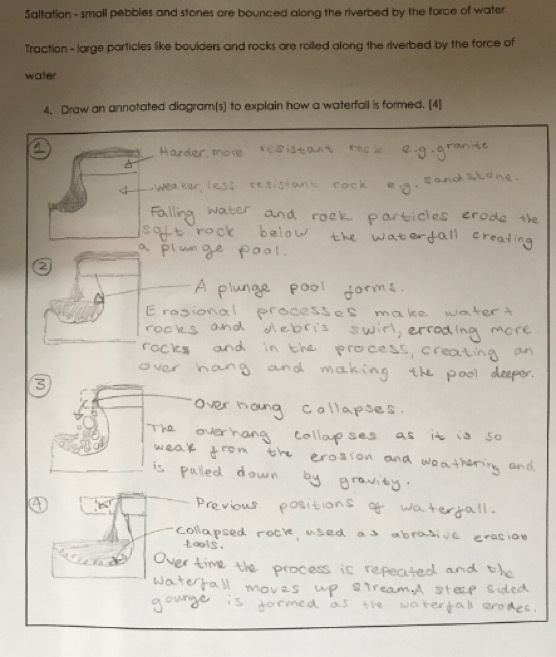 Saltation - small pebbles and stones are bounced along the riverbed by the force of water
Traction - large particles like boulders and rocks are rolled along the riverbed by the force of
water
4. Draw an annotated diagram(s) to explain how a waterfall is formed. [4]
1
Harder, more resistant rock e.g. granite
weaker, less resistant rock e.g. sandstone.
Falling water and rock particles erode the
soft rock below the waterfall creating
a plunge pool.
2
A plunge pool forms.
Erosional processes make water +
rocks and debris swirl, erroding more
rocks and in the process, creating an
over hang and making the pool deeper.
3
Over hang collapses.
The overhang collapses as it is so
weak from the erosion and weathering and
is pulled down by gravity.
4
Previous positions of waterfall.
collapsed rock, used as abrasive erosion
tools.
Over time the process is repeated and the
waterfall moves up stream. A steep sided
gounge is formed as the waterfall erodes.